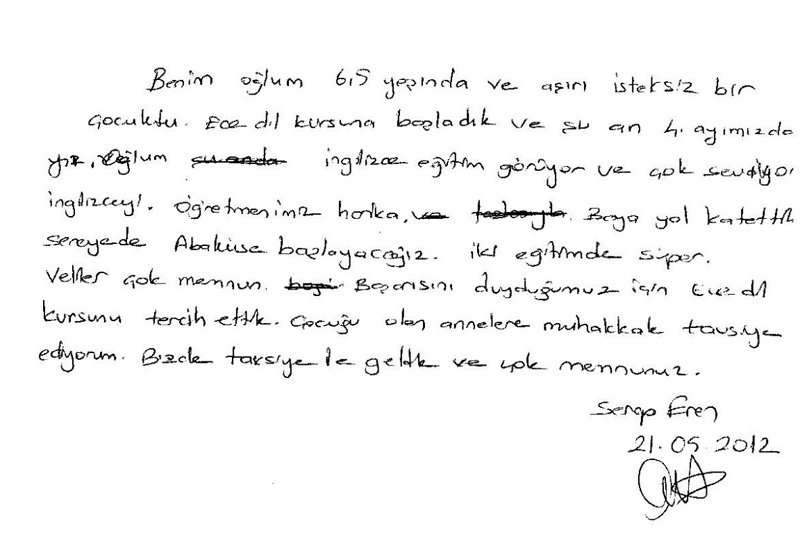 Benim oğlum 6,5 yaşında ve aşırı isteksiz bir
çocuktu. Ece dil kursuna başladık ve şu an 4. ayımızda
yız. Oğlum şu anda ingilizce eğitim görüyor ve çok seviyor
ingilizceyi. Öğretmenimiz harika, ve Baya yol katettik
sereyede Abaküse başlayacağız. iki eğitimde süper.
Veliler çok memnun. Başarısını duyduğumuz için Ece dil
kursunu tercih ettik. Çocuğu olan annelere muhakkak tavsiye
ediyorum. Bizde tavsiye ile geldik ve çok memnunuz.
Serap Eren
21.05.2012